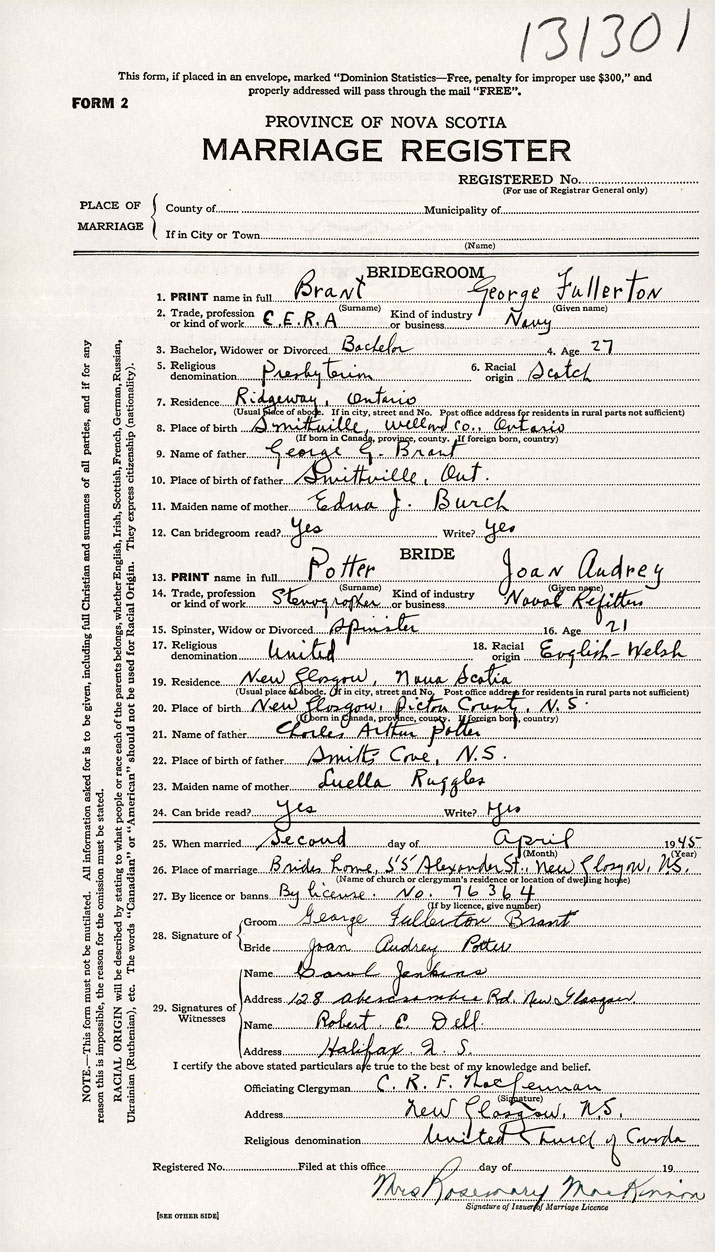 131301
This form, if placed in an envelope, marked "Dominion Statistics—Free, penalty for improper use $300," and
properly addressed will pass through the mail "FREE".
FORM 2
PROVINCE OF NOVA SCOTIA
MARRIAGE REGISTER
REGISTERED No.
(For use of Registrar General only)
PLACE OF MARRIAGE
County of Municipality of
If in City or Town
(Name)
BRIDEGROOM
1. PRINT name in full Brant George Fullerton
(Surname) (Given name)
2. Trade, profession or kind of work C.E.R.A Kind of industry or business Navy
3. Bachelor, Widower or Divorced Bachelor 4. Age 27
5. Religious denomination Presbyterian 6. Racial origin Scotch
7. Residence Ridgeway, Ontario
(Usual place of abode. If in city, street and No. Post office address for residents in rural parts not sufficient)
8. Place of birth Smithville, Welland Co., Ontario
(If born in Canada, province, county. If foreign born, country)
9. Name of father George G. Brant
10. Place of birth of father Smithville, Ont.
11. Maiden name of mother Edna J. Burch
12. Can bridegroom read? Yes Write? Yes
BRIDE
13. PRINT name in full Potter Joan Audrey
(Surname) (Given name)
14. Trade, profession or kind of work Stenographer Kind of industry or business Naval Refitters
15. Spinster, Widow or Divorced Spinster 16. Age 21
17. Religious denomination United 18. Racial origin English-Welsh
19. Residence New Glasgow, Nova Scotia
(Usual place of abode. If in city, street and No. Post office address for residents in rural parts not sufficient)
20. Place of birth New Glasgow, Pictou County, N.S.
(If born in Canada, province, county. If foreign born, country)
21. Name of father Charles Arthur Potter
22. Place of birth of father Smiths Cove, N.S.
23. Maiden name of mother Luella Ruggles
24. Can bride read? Yes Write? Yes
25. When married Second day of April 1945
(Month) (Year)
26. Place of marriage Brides home, 55 Alexander St., New Glasgow, NS.
(Name of church or clergyman's residence or location of dwelling house)
27. By licence or banns By license. No. 76364
(If by licence, give number)
28. Signature of
Groom George Fullerton Brant
Bride Joan Audrey Potter
29. Signatures of Witnesses
Name Carol Jenkins
Address 128 Abercrombie Rd. New Glasgow
Name Robert E. Dell.
Address Halifax N.S.
I certify the above stated particulars are true to the best of my knowledge and belief.
Officiating Clergyman C. R. F. MacLennan
(Signature)
Address New Glasgow, NS.
Religious denomination United Church of Canada
Registered No. Filed at this office day of 19
Mrs Rosemary MacKinnon
Signature of Issuer of Marriage Licence
[SEE OTHER SIDE]
NOTE.—This form must not be mutilated. All information asked for is to be given, including full Christian and surnames of all parties, and if for any
reason this is impossible, the reason for the omission must be stated.
RACIAL ORIGIN will be described by stating to what people or race each of the parents belongs, whether English, Irish, Scottish, French, German, Russian,
Ukrainian (Ruthenian), etc. The words "Canadian" or "American" should not be used for Racial Origin. They express citizenship (nationality).